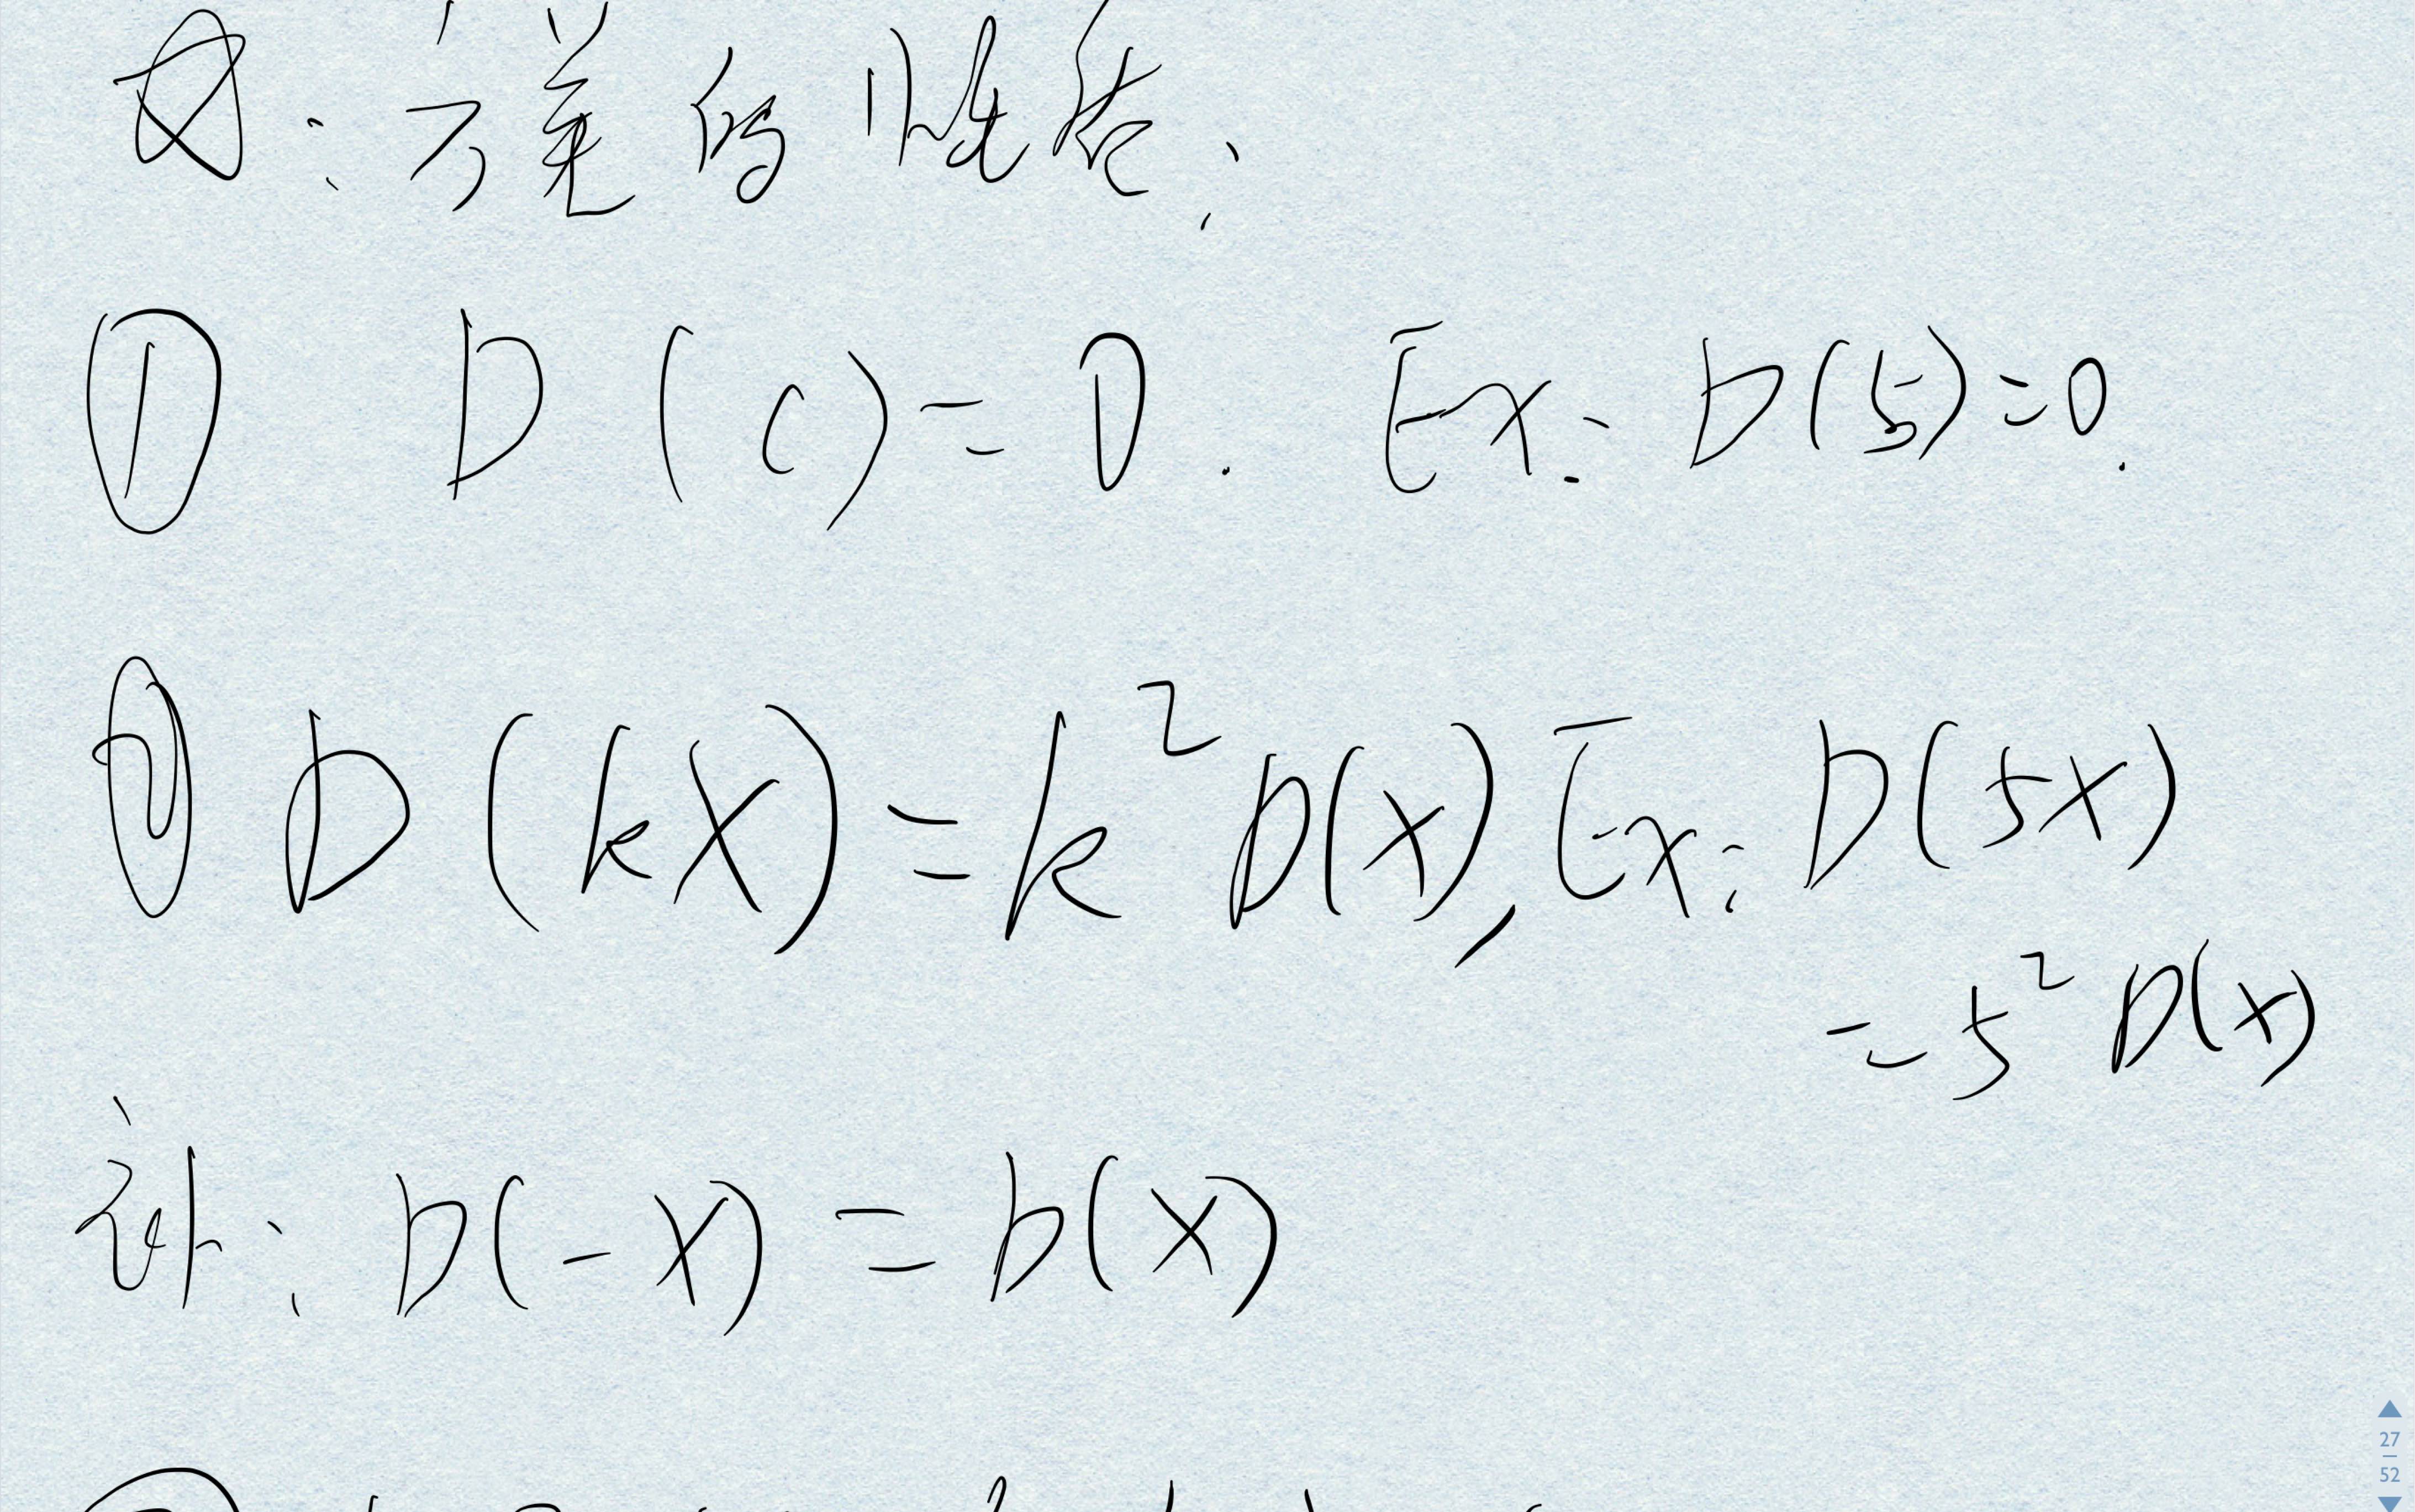 方差的性质:
① D(c)=0. Ex: D(5)=0.
② D(kX)=k²D(X), Ex: D(5X)
=5²D(X)
补: D(-X)=D(X)
27
52